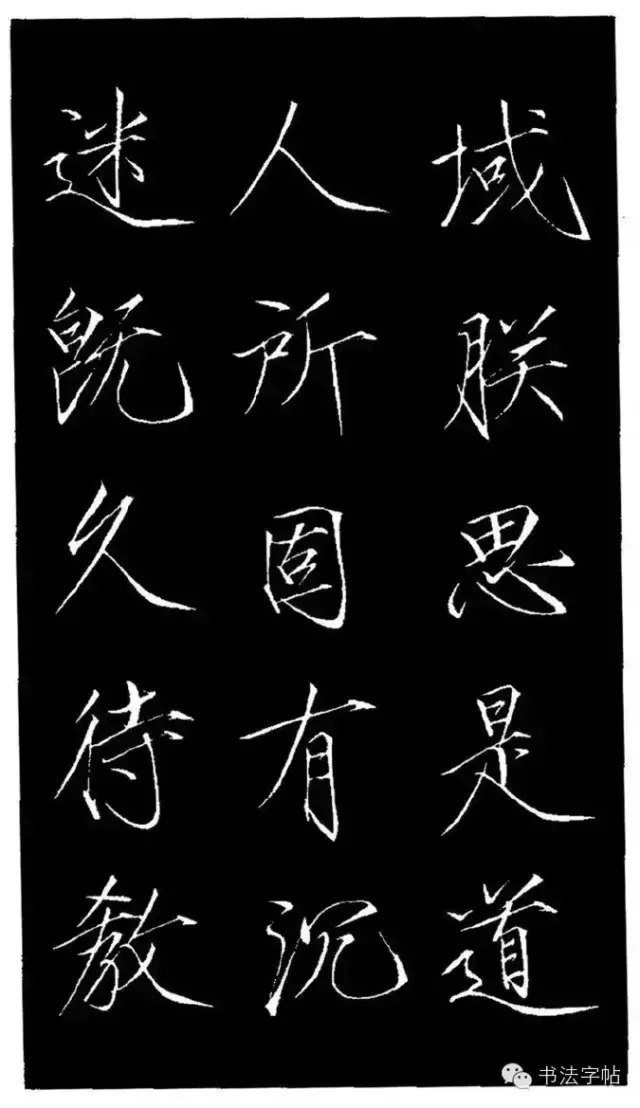 域朕思是道
人所固有沉
迷既久待教
书法字帖